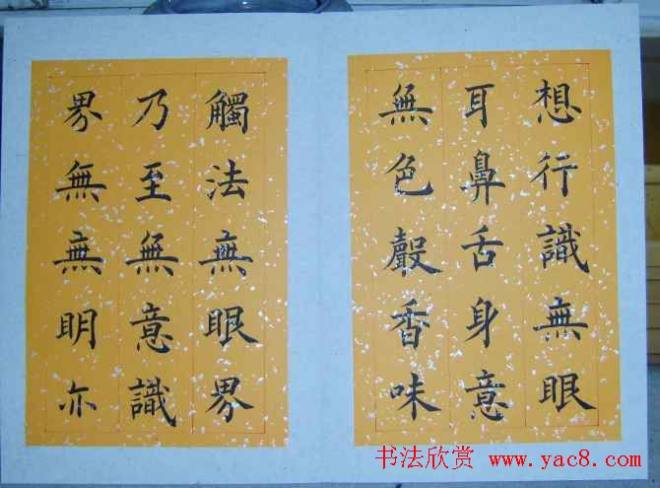 想行識無眼
耳鼻舌身意
無色聲香味
觸法無眼界
乃至無意識
界無無明亦
书法欣赏 www.yac8.com